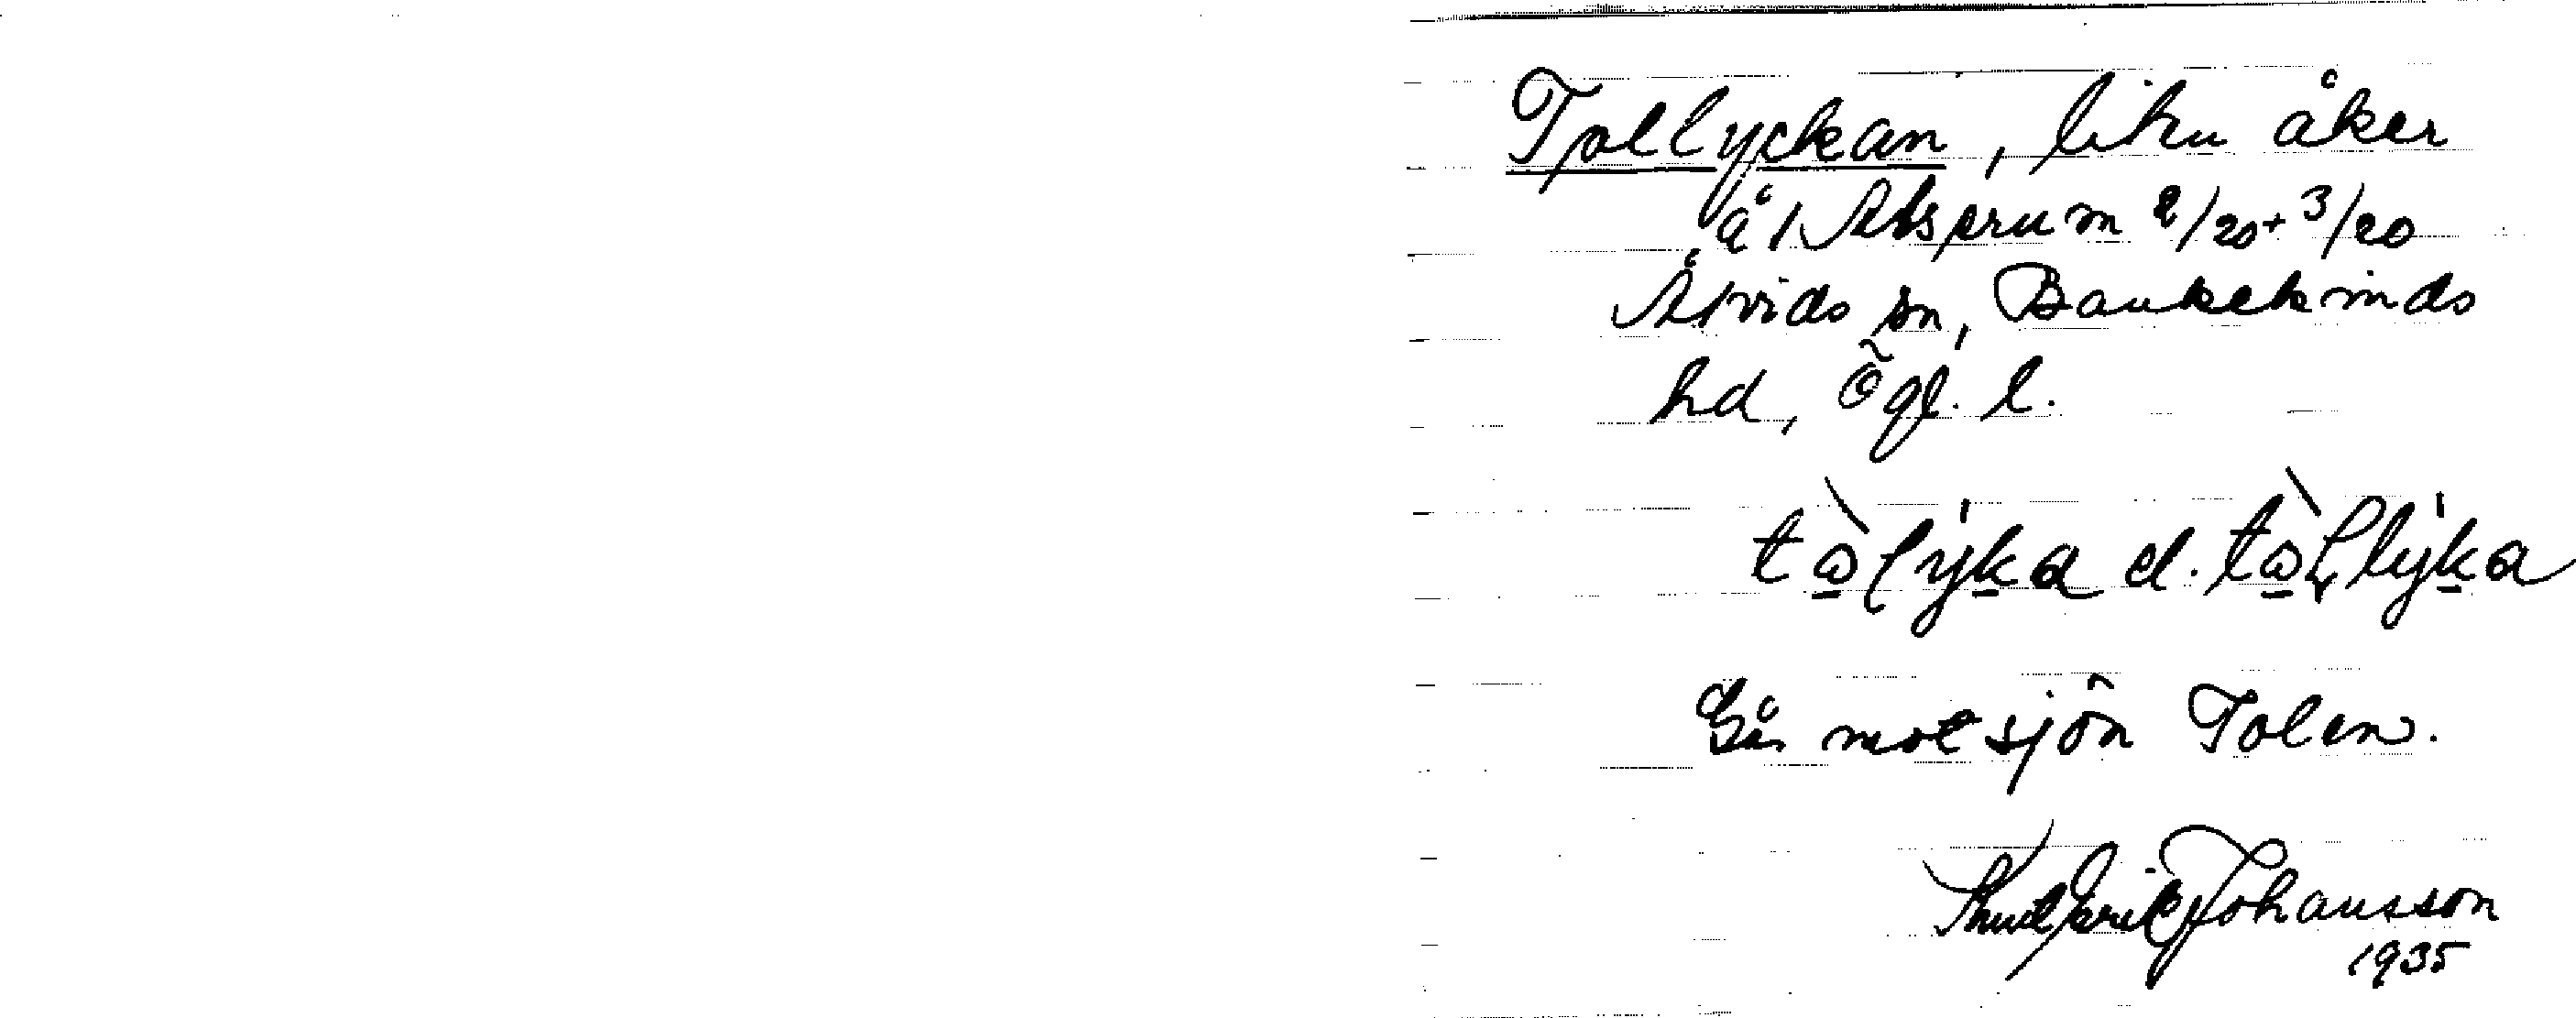 Tollyckan, liten åker
å Absprum 2/20 + 3/20
Åtvids sn, Bankekinds
hd, Ögl. l.
tòlýka el. tòllýka
Går mot sjön Tolen.
Knut Erik Johansson
1935